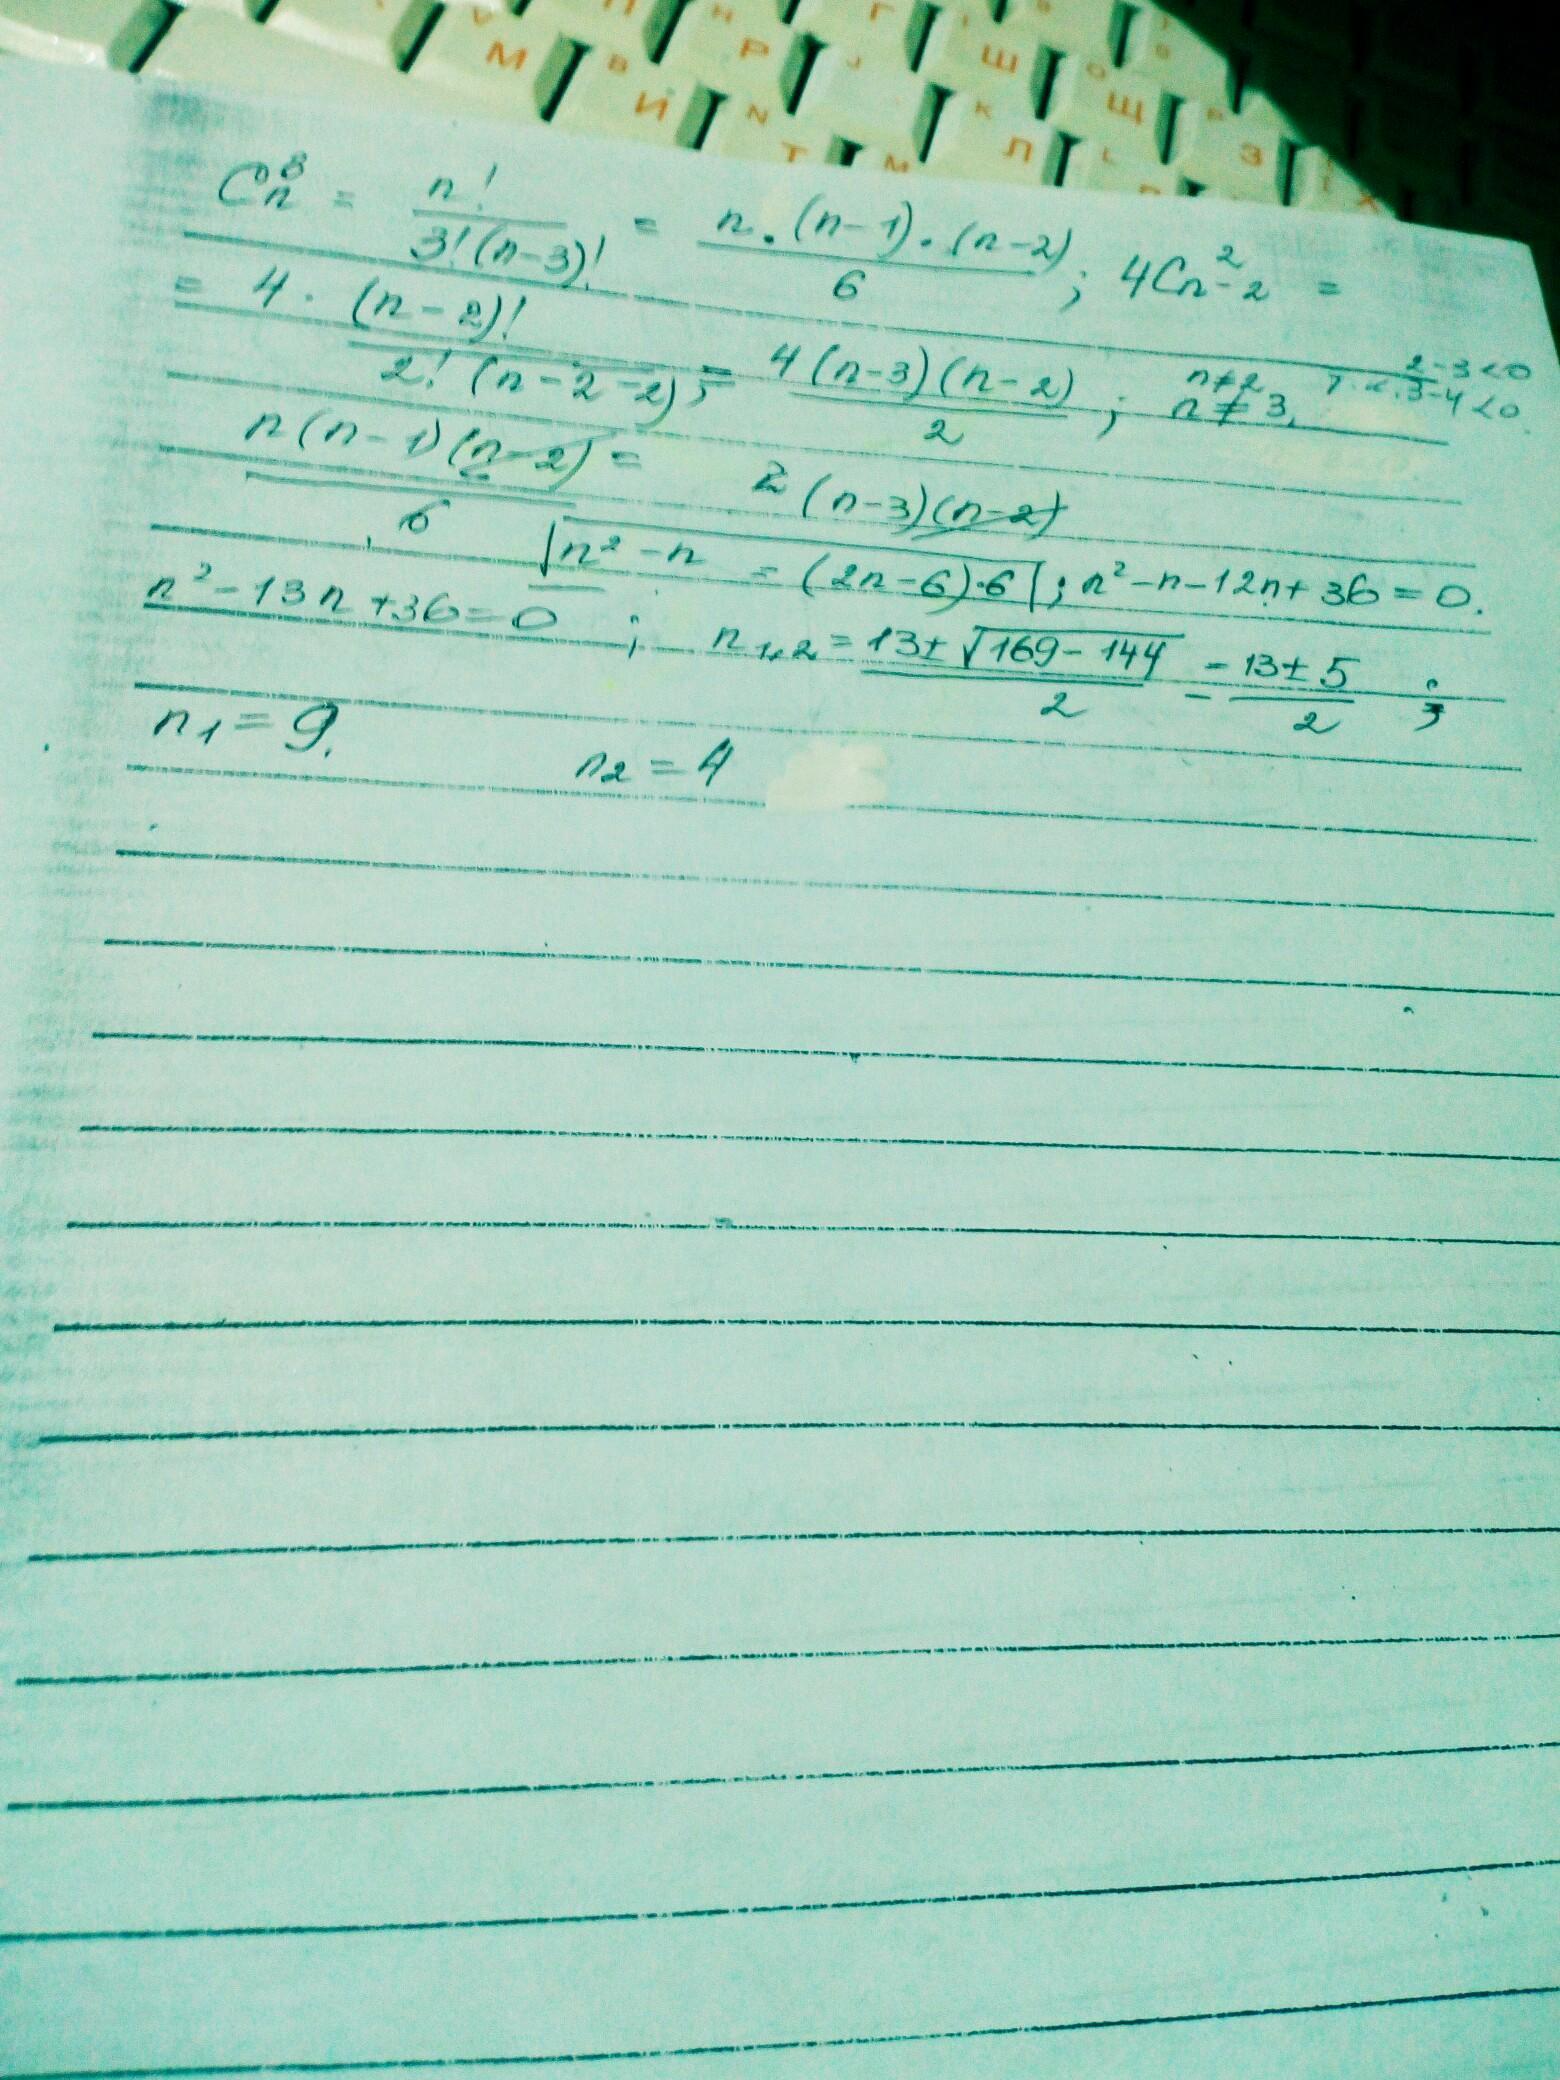 М В И П Н Р N Т Г Ш К М О Щ Л Ь З
C_n^3 = n! / 3!(n-3)! = n·(n-1)·(n-2) / 6 ; 4C_{n-2}^2 =
= 4 · (n-2)! / 2!(n-2-2)! = 4(n-3)(n-2) / 2 ; n≠2 n≠3, т.к. 2-3<0 3-4<0.
n(n-1)(n-2) / 6 = 2(n-3)(n-2)
n²-n = (2n-6)·6 ; n²-n-12n+36=0.
n²-13n+36=0 ; n1,2 = 13±√169-144 / 2 = 13±5 / 2 ;
n1=9. n2=4